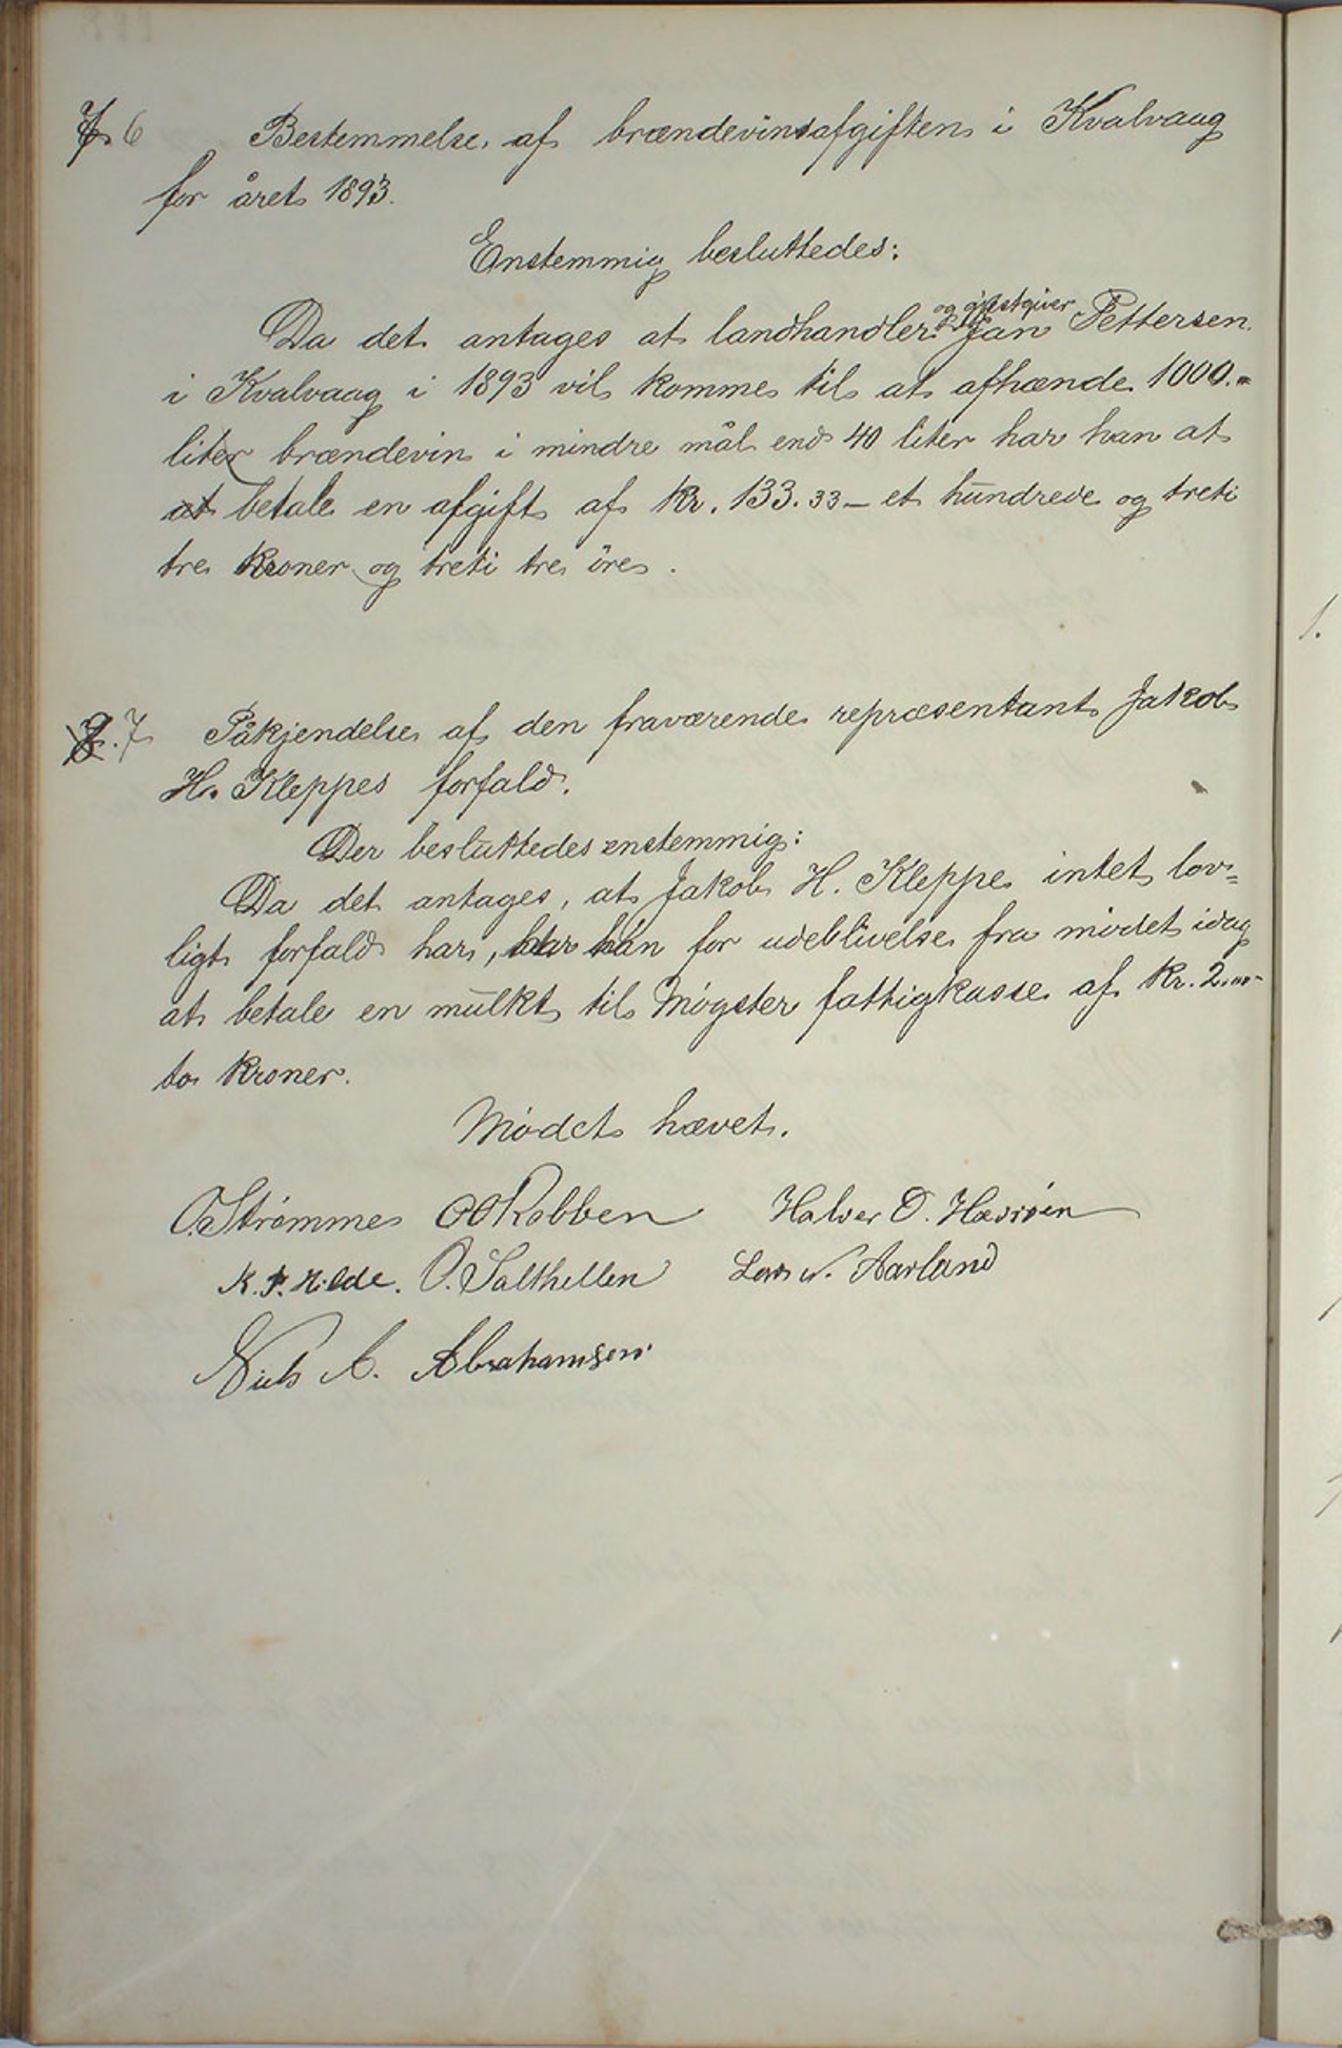 6 Bestemmelse af brændevinsafgiften i Kvalvaag
for året 1893.
Enstemmig besluttedes:
og gjestgiver
Da det antages at landhandler Jan Pettersen
i Kvalvaag i 1893 vil komme til at afhænde 1000.-
liter brændevin i mindre mål end 40 liter har han at
at betale en afgift af kr. 133.33 – et hundrede og treti
tre kroner og treti tre öre.
7 Påkjendelse af den fraværende repræsentant Jakob
H. Kleppes forfald.
Der besluttedes enstemmig:
Da det antages, at Jakob H. Kleppe intet lov=
ligt forfald har, har han for udeblivelse fra mødet idag
at betale en mulkt til Møgster fattigkasse af kr. 2.00-
to kroner.
Mødet hævet.
O. Strømme OO Robben Halver O. Hævrøen
K. P. Hilde. O. Salthellen Lars N. Aarland
Niels A. Abrahamsen
1.